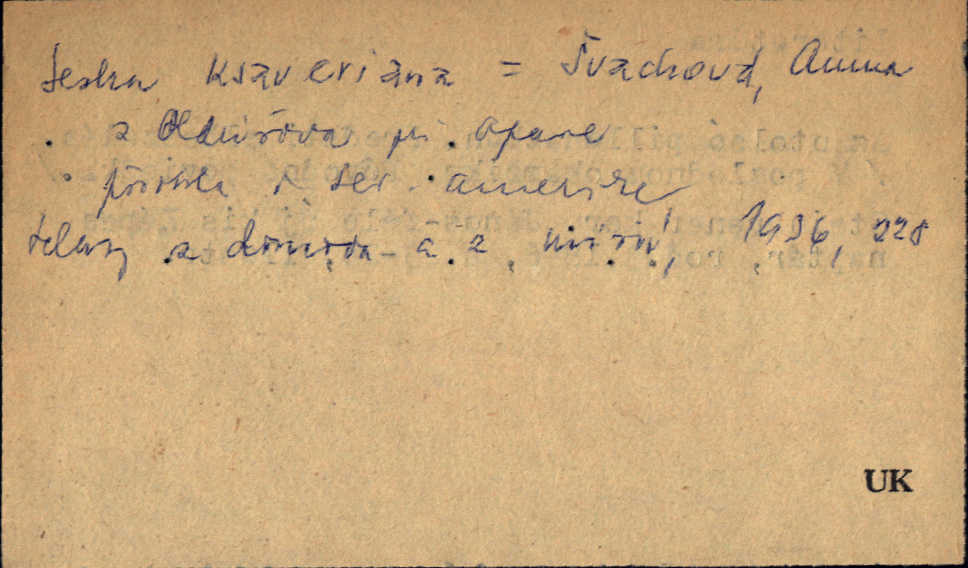 Sestra Ksaveriana = Švachová, Anna
z Oldřišova při Opavě
působila v sev. Americe
Hlasy z domova a z misií, 1936, 228
UK